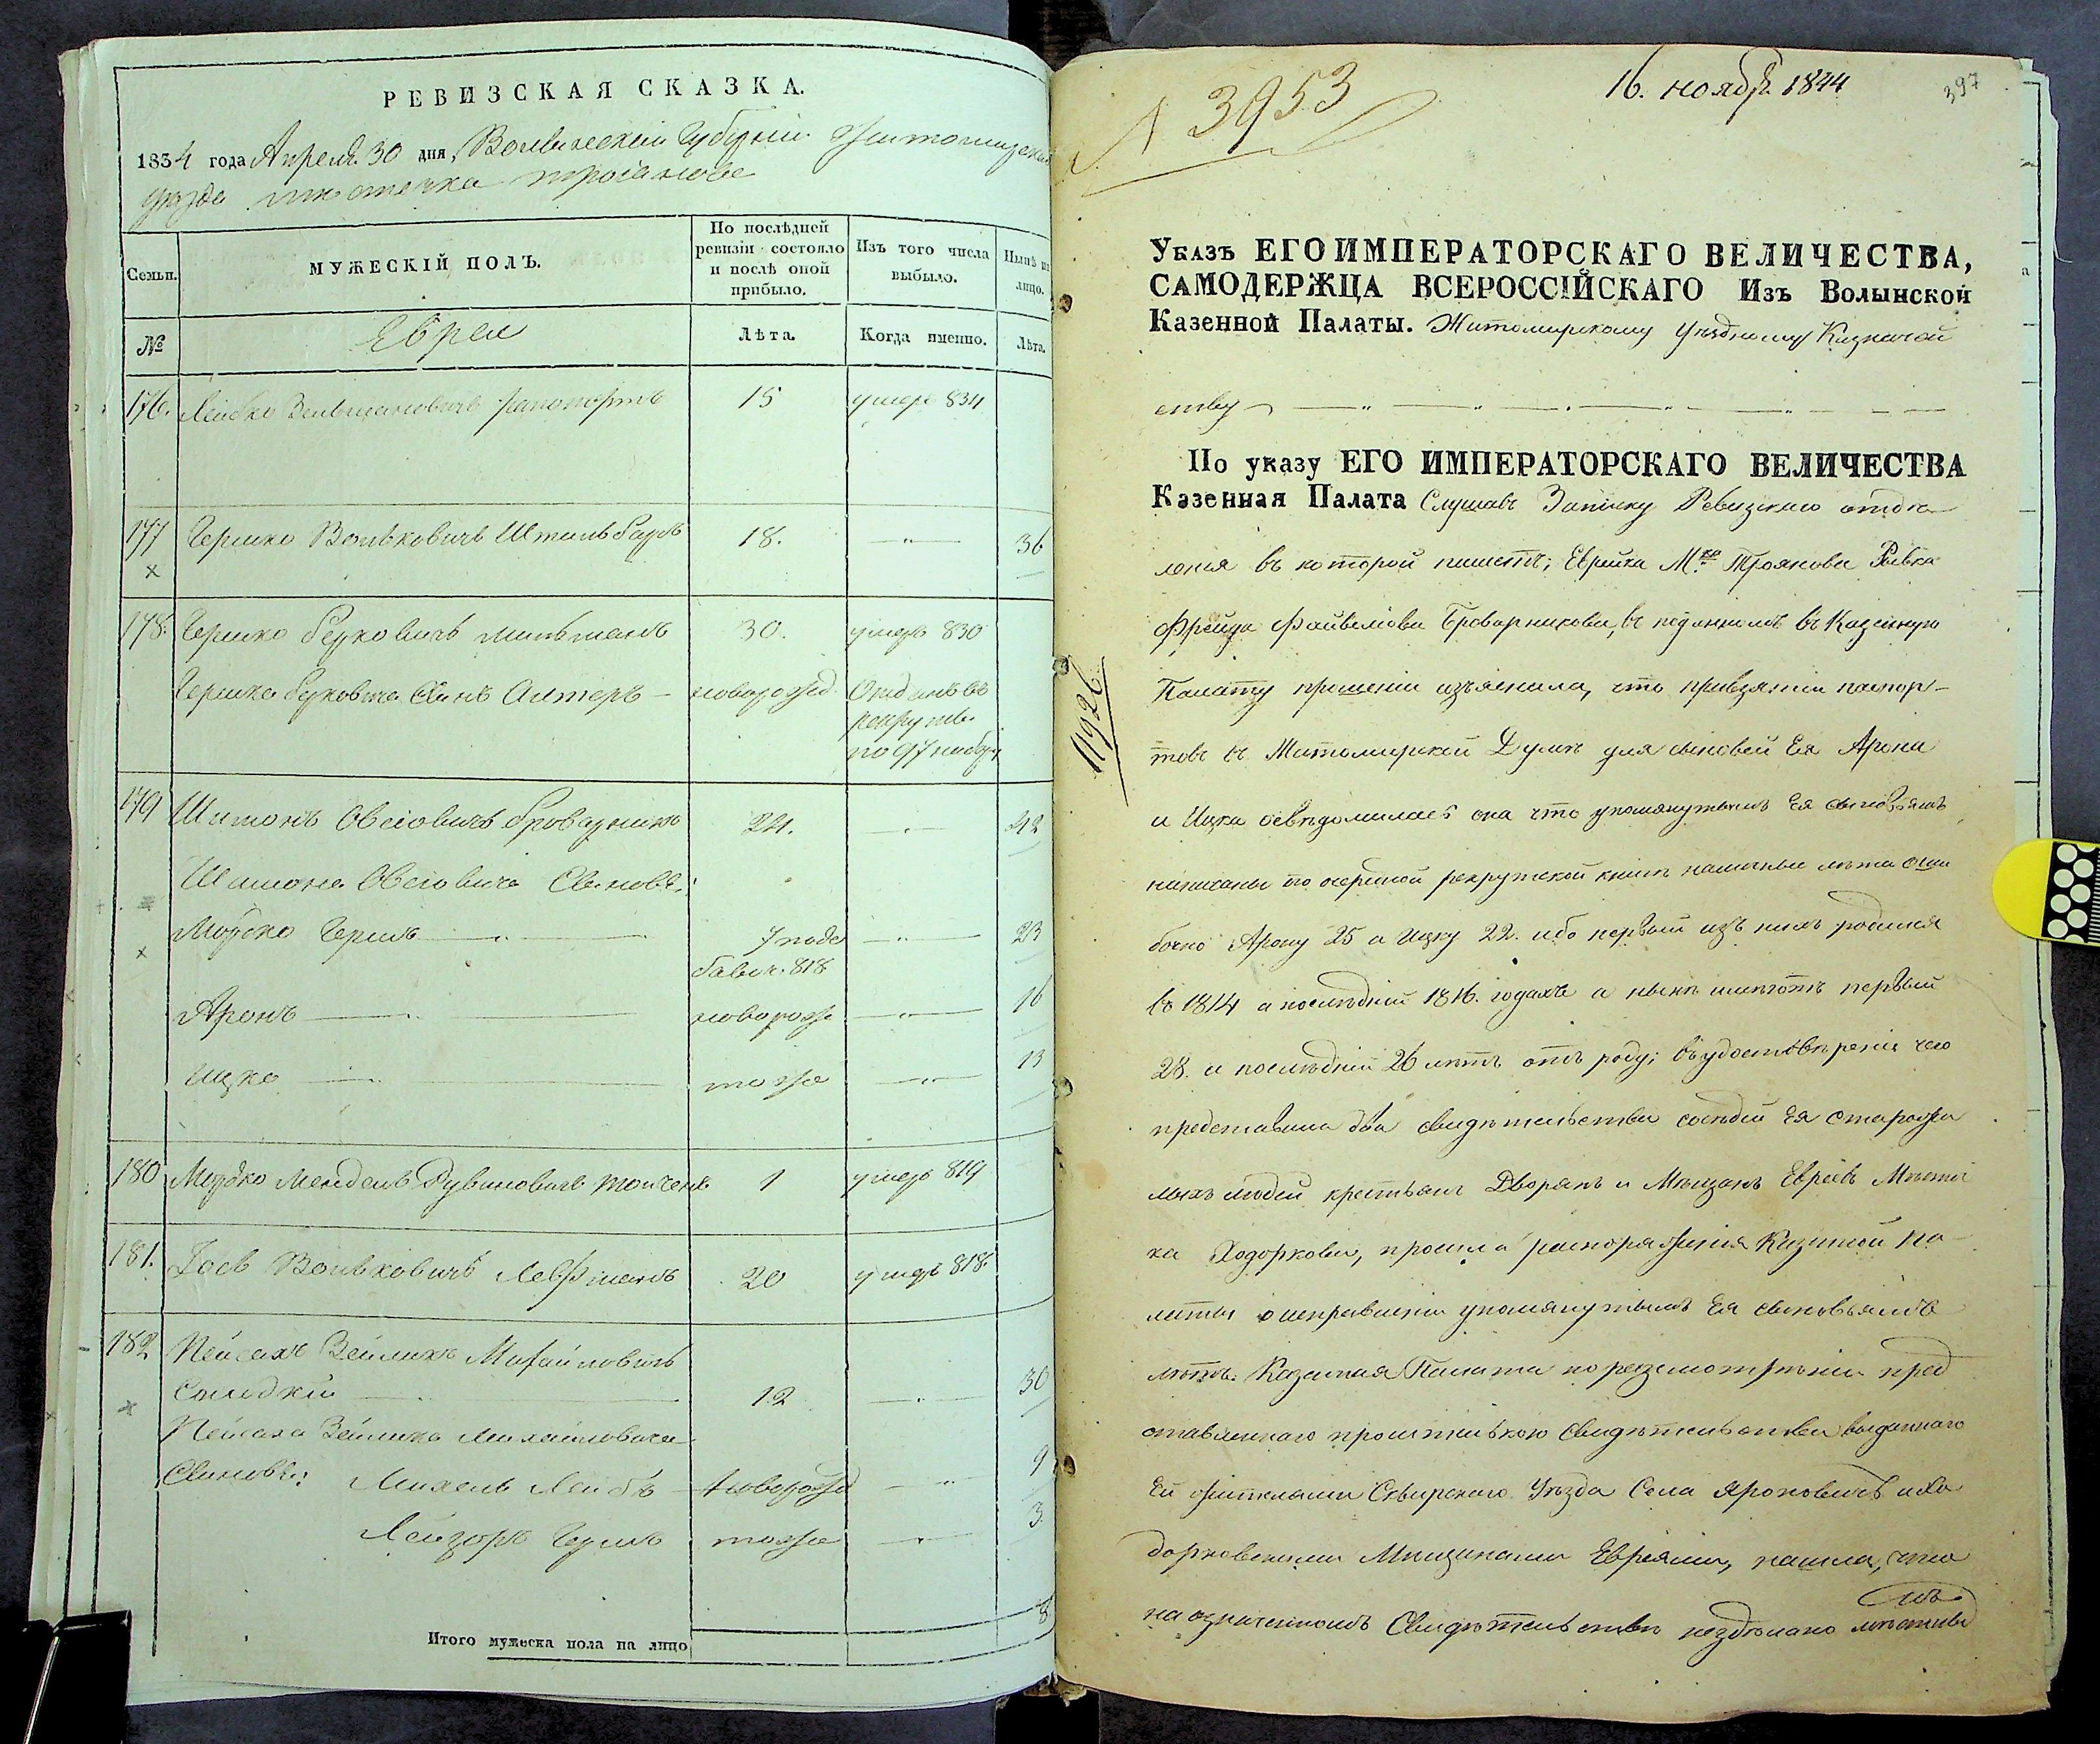 РЕВИЗСКАЯ СКАЗКА.
1834 года Апреля 30 дня, Волынской Губернии Житомирскаго
уезда местечка Троянова
Семьи.
МУЖЕСКІЙ ПОЛЪ.
По послѣдней ревизіи состояло и послѣ оной прибыло.
Изъ того числа выбыло.
Нынѣ на лицо.
№
Евреи
Лѣта.
Когда именно.
Лѣта.
176. Лейбко Рапопортъ 15 умеръ 834
177 Гершко Вольковичъ Штильбаръ 18. — " — 36
178. Гершко Берковичъ Мильманъ 30. умеръ 830
Гершка Берковича Сынъ Алтеръ — новорожд Отданъ въ
рекруты
по 97 набору
179 Шимонъ Овсіовичъ Броварникъ 24. — " — 42
Шимона Овсіовича Сыновья:
Мошко Гершъ — " — 7 неде — " — 23
бавоч. 818
Аронъ — " — новорож — " — 16
Ицко — " — тоже — " — 13
180 Мордко Мендель Рувиновичъ 1 умеръ 819
181. Іось Вольковичъ 20 умеръ 818
182 Пейсахъ Зейликъ Михайловичъ
Солодкій — " — 12 — " — 30
Пейсаха Зейлика Михайловича
Сыновья: Михель Лейбъ новорожд — " — 9
Лейзоръ Гершъ тоже — " — 3.
Итого мужеска пола на лицо 8
№ 3953
16. ноябр. 1844
397
Указъ ЕГО ИМПЕРАТОРСКАГО ВЕЛИЧЕСТВА,
САМОДЕРЖЦА ВСЕРОССІЙСКАГО Изъ Волынской
Казенной Палаты. Житомирскому Уездному Казначей
ству — " — " — " — " — " — " — —
По указу ЕГО ИМПЕРАТОРСКАГО ВЕЛИЧЕСТВА
Казенная Палата Слушавъ Записку Ревизскаго отдѣ
ленія въ которой пишетъ; Еврейка М.ка Троянова Ривка
Фрейда Файвелюва Броварникова, въ поданномъ въ Казенную
Палату прошеніи изъяснила, что при взятіи паспор-
товъ въ Житомирской Думѣ для сыновей Ея Арона
и Ицка освѣдомилась она что упомянутымъ Ея сыновьямъ
написаны по очередной рекрутской книгѣ лѣта оши
бочно Арону 25 а Ицку 22. ибо первый изъ нихъ родился
въ 1814 а послѣдній 1816. годахъ а нынѣ имѣютъ первый
28. а послѣдній 26 лѣтъ отъ роду; въ удостовѣреніе чего
представила два свидѣтельства сосѣдей Ея старожи
лыхъ людей крестьянъ Дворянъ и Мѣщанъ Евреевъ Мѣстеч
ка Ходоркова, просила распоряженія Казенной Па-
латы о исправленіи упомянутымъ Ея сыновьямъ
лѣтъ. Казенная Палата по разсмотрѣніи пред
ставленнаго просительницею Свидѣтельства выданнаго
Ей жителями Сквирскаго Уѣзда Села Яроповичъ и Хо
дорковскими Мѣщанами Евреями, нашла, что
на означенномъ Свидѣтельствѣ нездѣлано мѣстны
мъ
11926